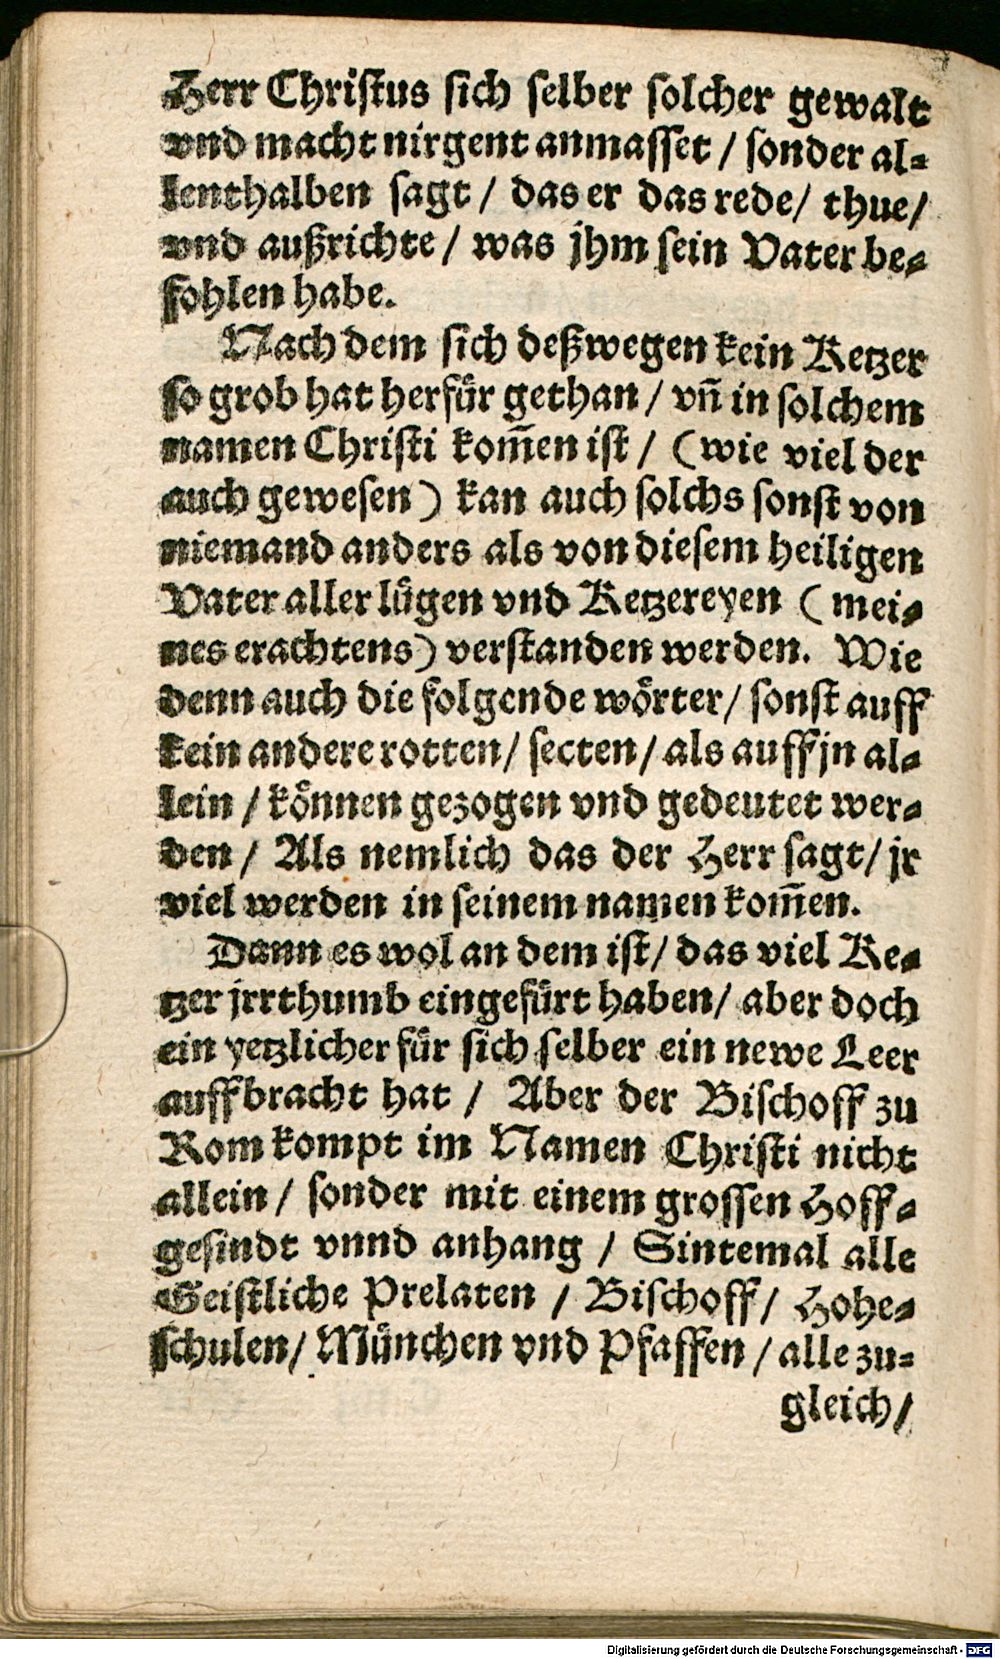 Herr Christus sich selber solcher gewalt
vnd macht nirgent anmasset / sonder al⸗
lenthalben sagt / das er das rede / thue /
vnd außrichte / was jhm sein Vater be⸗
fohlen habe.
Nach dem sich deßwegen kein Ketzer
so grob hat herfür gethan / vñ in solchem
namen Christi kom̃en ist / (wie viel der
auch gewesen) kan auch solchs sonst von
niemand anders als von diesem heiligen
Vater aller lügen vnd Ketzereyen (mei⸗
nes erachtens) verstanden werden. Wie
denn auch die folgende wörter / sonst auff
kein andere rotten / secten / als auff jn al⸗
lein / können gezogen vnd gedeutet wer⸗
den / Als nemlich das der Herr sagt / jr
viel werden in seinem namen kom̃en.
Dann es wol an dem ist / das viel Ke⸗
tzer jrrthumb eingefürt haben / aber doch
ein yetzlicher für sich selber ein newe Leer
auffbracht hat / Aber der Bischoff zu
Rom kompt im Namen Christi nicht
allein / sonder mit einem grossen Hoff⸗
gesindt vnnd anhang / Sintemal alle
Geistliche Prelaten / Bischoff / Hohe⸗
schulen / München vnd Pfaffen / alle zu⸗
gleich /
Digitalisierung gefördert durch die Deutsche Forschungsgemeinschaft - DFG